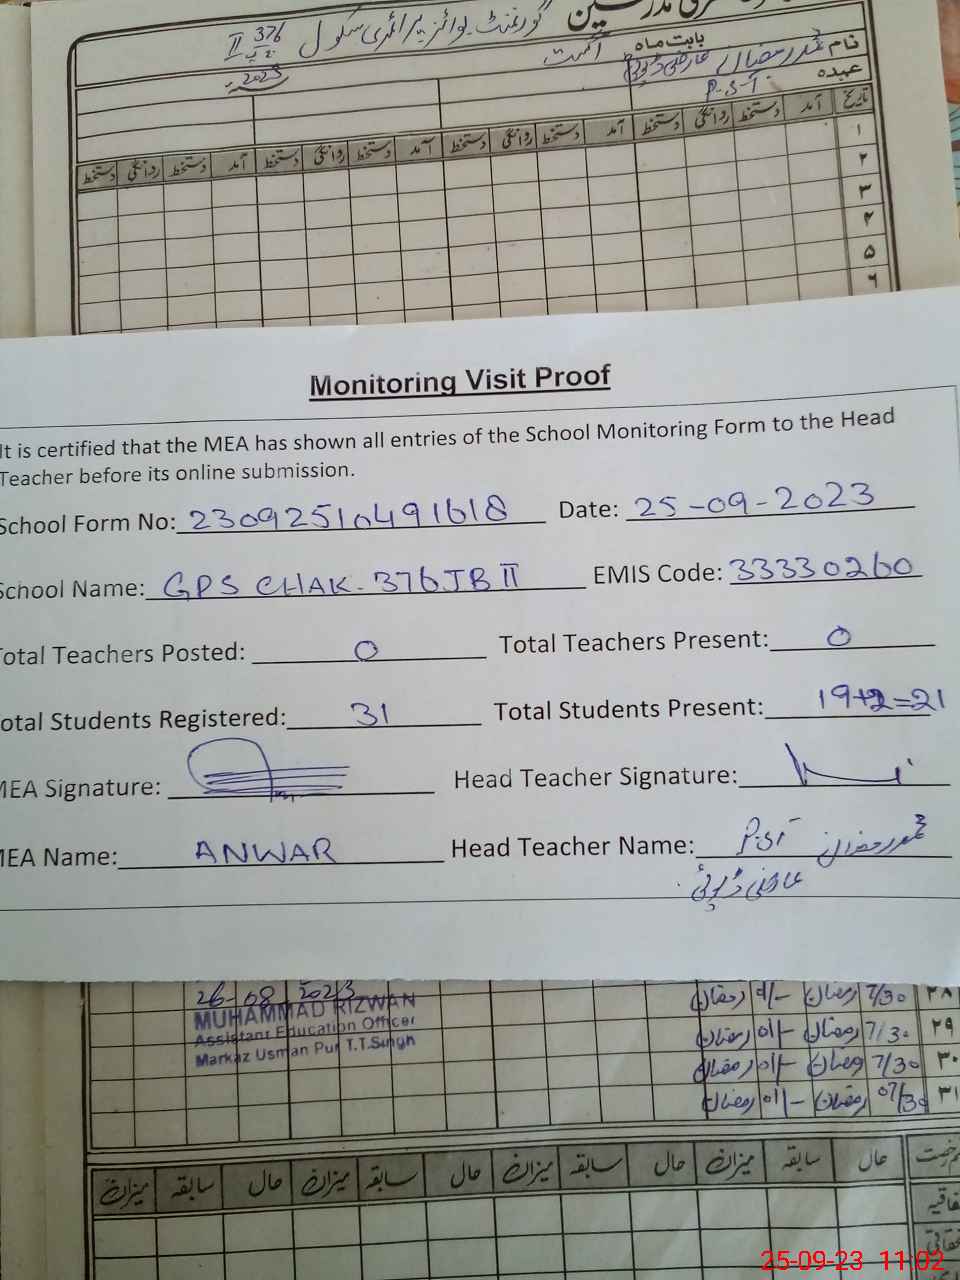 گورنمنٹ بوائز پرائمری سکول 376 ج ب II
نام محمد رمضان عارضی ڈیوٹی بابت ماہ اگست 2023
عہدہ P.S.T
تاریخ آمد دستخط روانگی دستخط آمد دستخط روانگی دستخط آمد دستخط روانگی دستخط آمد دستخط روانگی دستخط
۱
۲
۳
۴
۵
۶
Monitoring Visit Proof
It is certified that the MEA has shown all entries of the School Monitoring Form to the Head
Teacher before its online submission.
School Form No: 23092510491618 Date: 25-09-2023
School Name: GPS CHAK. 376JB II EMIS Code: 33330260
Total Teachers Posted: 0 Total Teachers Present: 0
Total Students Registered: 31 Total Students Present: 19+2=21
MEA Signature: Head Teacher Signature:
MEA Name: ANWAR Head Teacher Name: P.S.T محمد رمضان
عارضی ڈیوٹی
26-08-2023
MUHAMMAD RIZWAN
Assistant Education Officer
Markaz Usman Pur T.T.Singh
۲۸ 7/30 رمضان 01/- رمضان
۲۹ 7/30 رمضان 01/- رمضان
۳۰ 7/30 رمضان 01/- رمضان
۳۱ 07/30 رمضان 01/- رمضان
حال سابقہ میزان حال سابقہ میزان حال سابقہ میزان حال سابقہ میزان
25-09-23 11:02